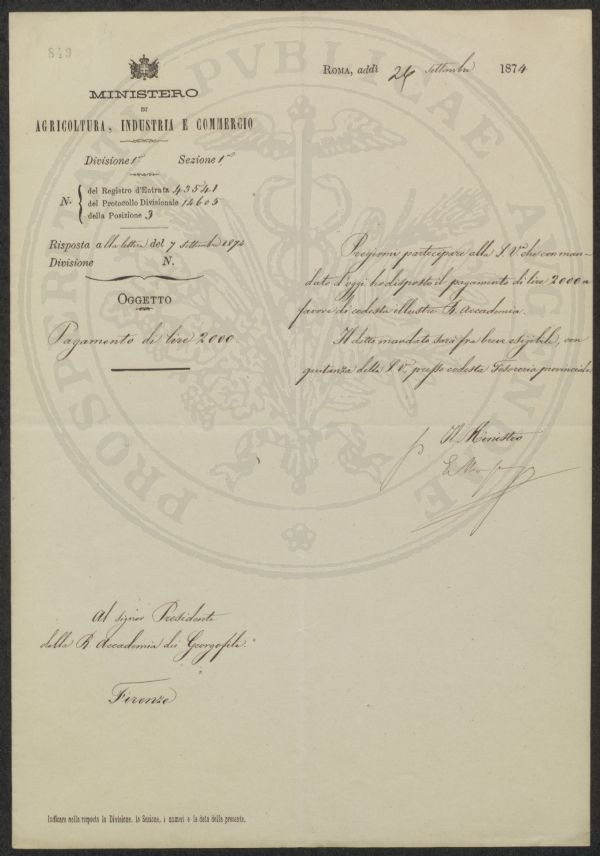 849
MINISTERO
DI
AGRICOLTURA, INDUSTRIA E COMMERCIO
Divisione 1ª Sezione 1ª
N.
del Registro d'Entrata 43541
del Protocollo Divisionale 14605
della Posizione 3
Risposta alla lettera del 7 Settembre 1874
Divisione N.
OGGETTO
Pagamento di lire 2000.
ROMA, addì 26 Settembre 1874
Pregiomi partecipare alla S. V. che con man-
dato d'oggi ho disposto il pagamento di lire 2000 a
favore di codesta illustre R. Accademia.
Il detto mandato sarà fra breve esigibile, con
quitanza della S. V., presso codesta Tesoreria provinciale.
Il Ministro
Al signor Presidente
della R Accademia dei Georgofili.
Firenze
Indicare nella risposta la Divisione, la Sezione, i numeri e la data della presente.
PROSPERITATI PVBLICAE AVGENDAE